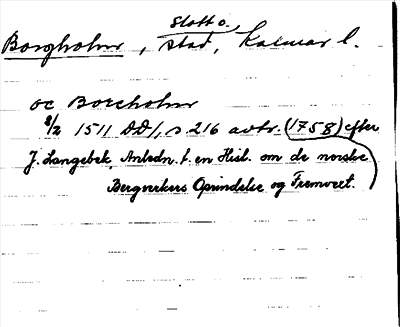 slott o.
Borgholm, stad, Kalmar l.
oc Borcholm
8/2 1511 DD 1, s 216 avtr. (1758) efter
J. Langebek, Anledn. t. en Hist. om de norske
Bergverkers Oprindelse og Fremvext.